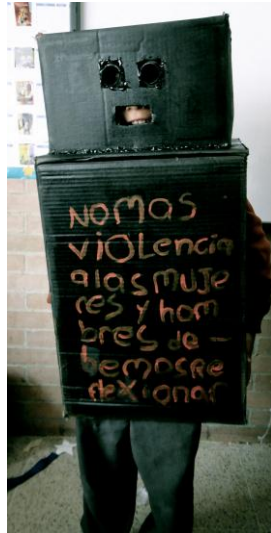 NOMAS
VIOLencia
alas MUJe
res y hom
bres de -
bemosre
flexionar